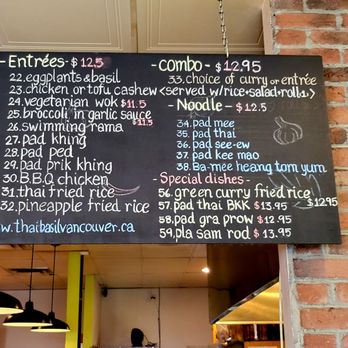 -Entrées- $12.5
22. eggplants & basil
23. chicken or tofu cashew
24. vegetarian wok $11.5
25. broccoli in garlic sauce
26. swimming rama $11.5
27. pad khing
28. pad ped
29. pad prik khing
30. B.B.Q chicken
31. thai fried rice
32. pineapple fried rice
w.thaibasilvancouver.ca
-combo- $12.95
33. choice of curry or entrée
<served w/rice+salad+roll1.>
-Noodle- $12.5
34. pad mee
35. pad thai
36. pad see-ew
37. pad kee mao
38. Ba-mee heang tom yum
-Special dishes-
56. green curry fried rice $12.95
57. pad thai BKK $13.95
58. pad gra prow $12.95
59. pla sam rod $13.95